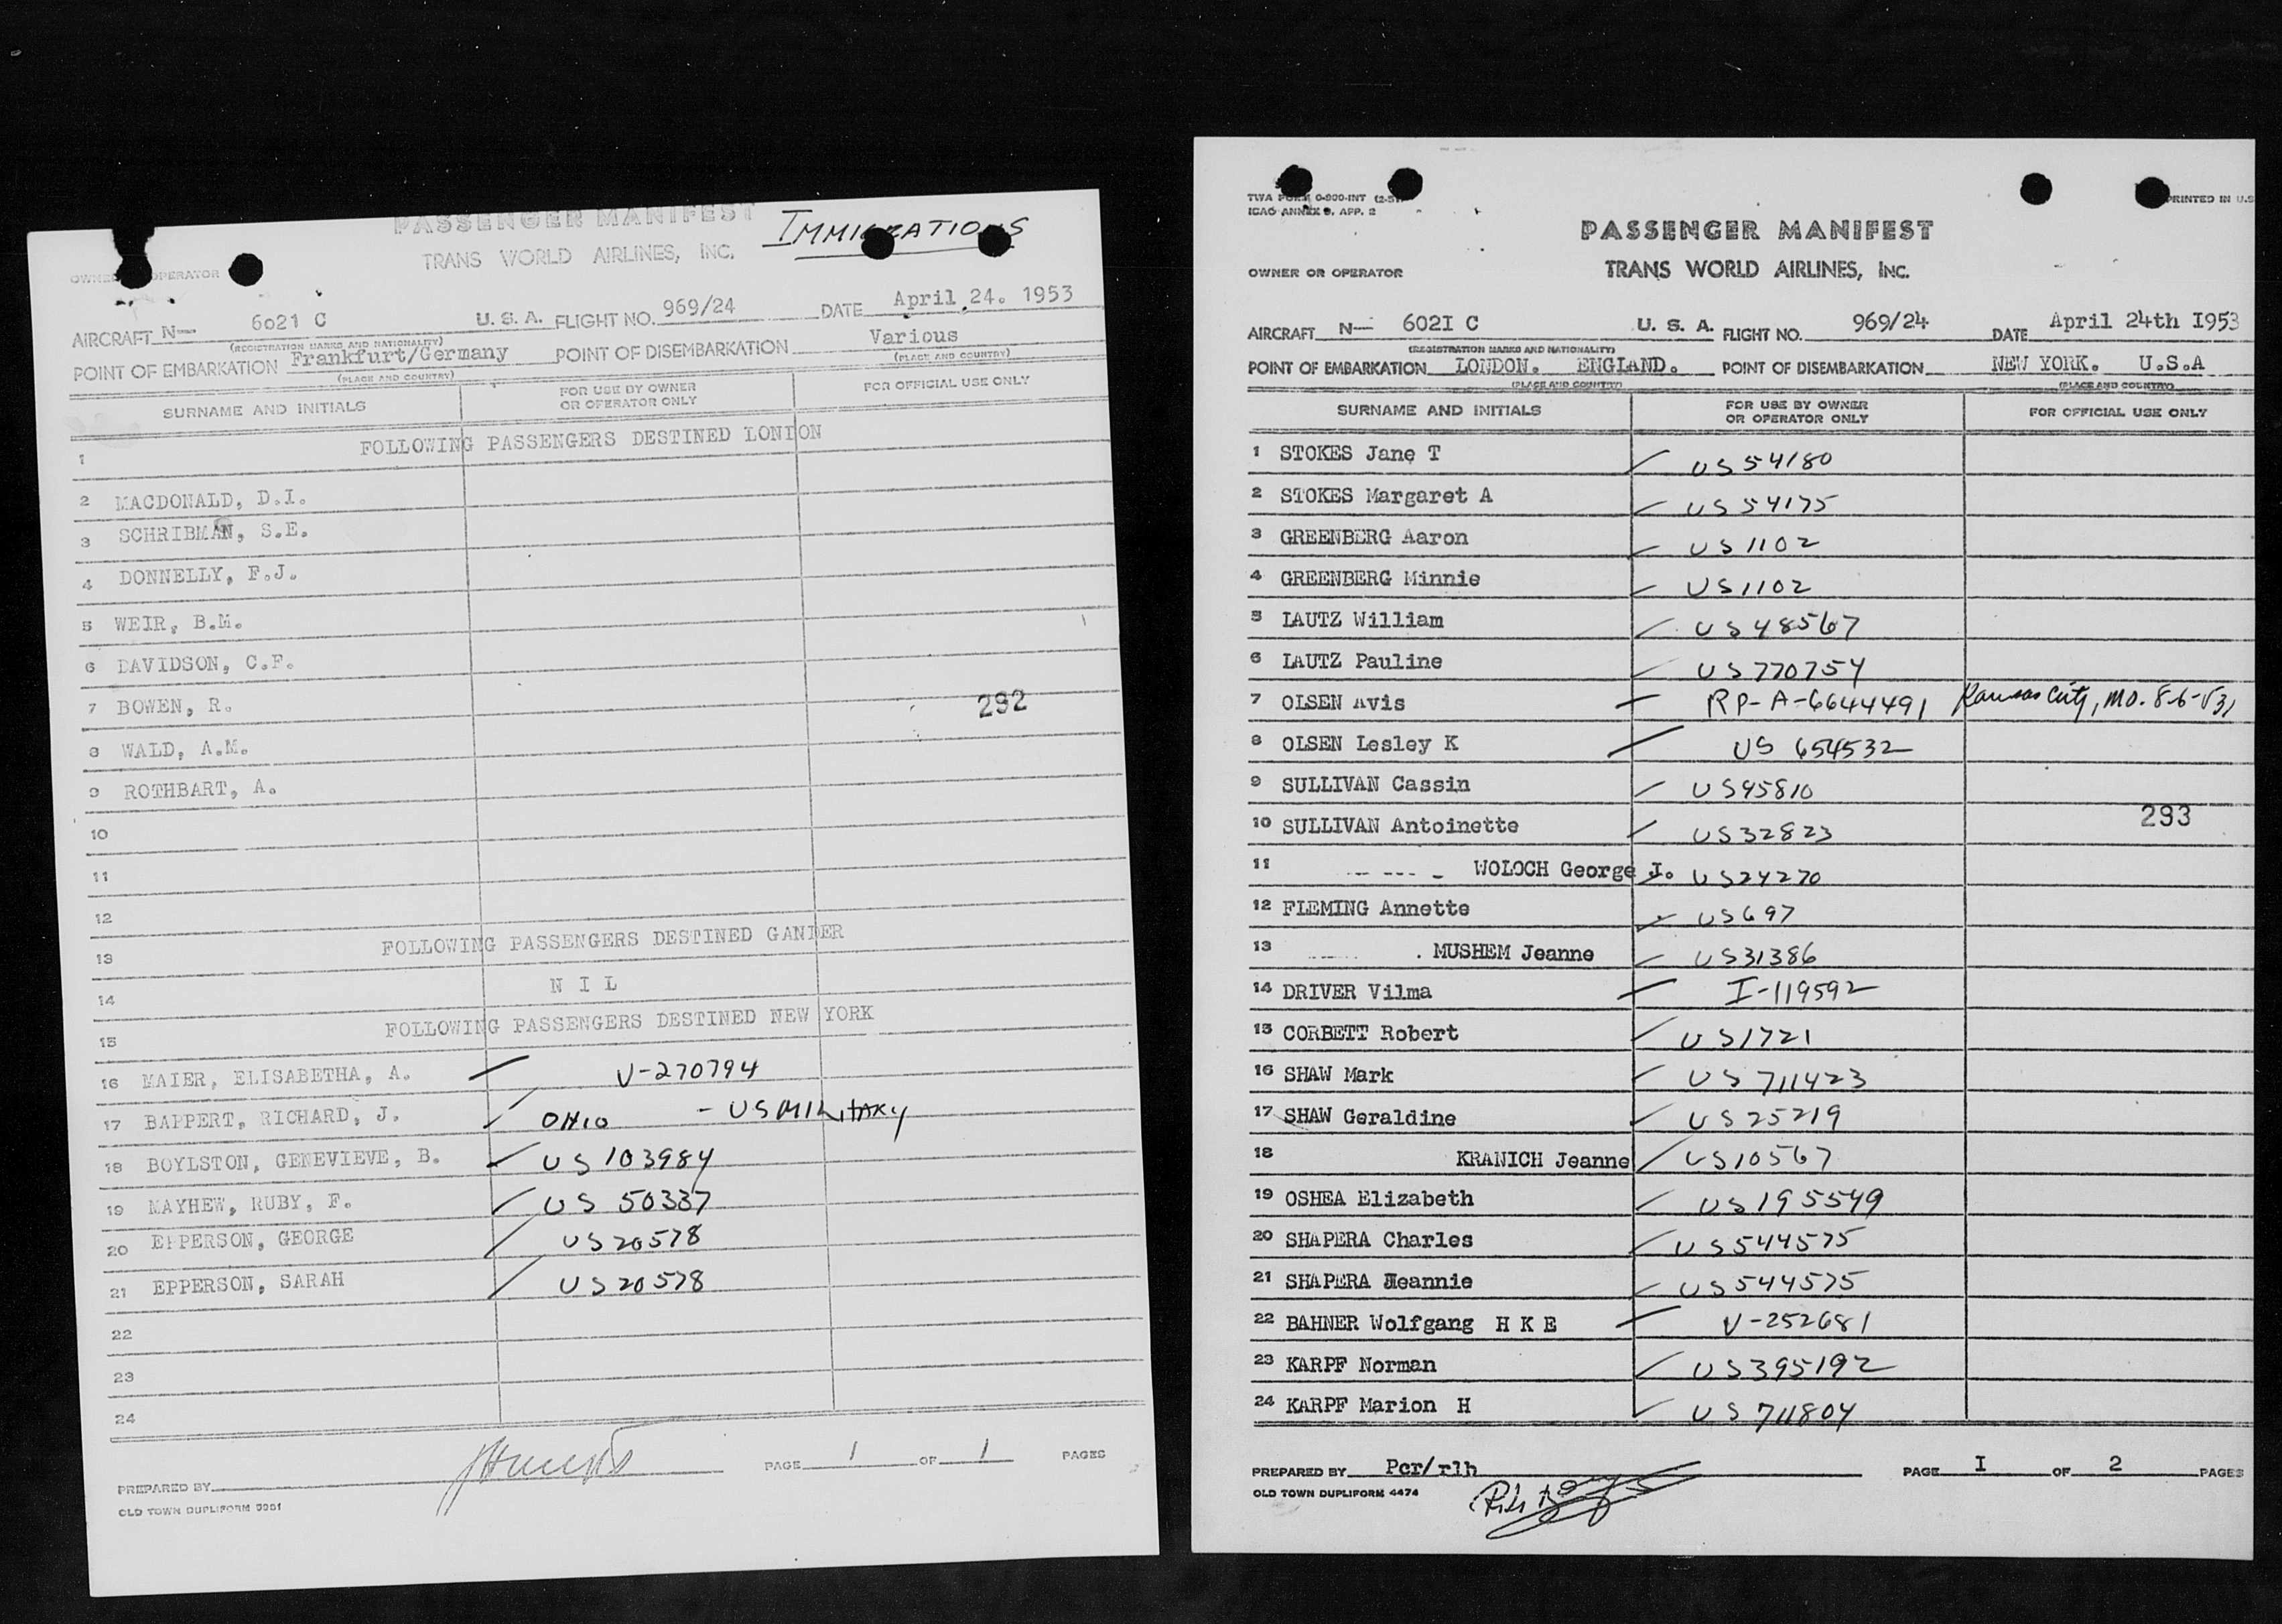 PASSENGER MANIFEST IMMIGRATIONS
TRANS WORLD AIRLINES, INC.
OPERATOR
AIRCRAFT N— 6021 C U. S. A. FLIGHT NO. 969/24 DATE April 24. 1953
(REGISTRATION MARKS AND NATIONALITY)
POINT OF EMBARKATION Frankfurt/Germany POINT OF DISEMBARKATION Various
(PLACE AND COUNTRY) (PLACE AND COUNTRY)
SURNAME AND INITIALS FOR USE BY OWNER OR OPERATOR ONLY FOR OFFICIAL USE ONLY
1 FOLLOWING PASSENGERS DESTINED LONDON
2 MACDONALD, D.I.
3 SCHRIBMAN, S.E.
4 DONNELLY, F.J.
5 WEIR, B.M.
6 DAVIDSON, C.F.
7 BOWEN, R. 292
8 WALD, A.M.
9 ROTHBART, A.
10
11
12
13 FOLLOWING PASSENGERS DESTINED GANDER
14 N I L
15 FOLLOWING PASSENGERS DESTINED NEW YORK
16 MAIER, ELISABETHA, A. V-270794
17 BAPPERT, RICHARD, J. OHIO - US MILITARY
18 BOYLSTON, GENEVIEVE, B. US 103984
19 MAYHEW, RUBY, F. US 50337
20 EPPERSON, GEORGE US 20578
21 EPPERSON, SARAH US 20578
22
23
24
PREPARED BY PAGE 1 OF 1 PAGES
OLD TOWN DUPLIFORM
TWA FORM 0-800-INT PRINTED IN U.S
ICAO ANNEX 9, APP. 2
PASSENGER MANIFEST
OWNER OR OPERATOR TRANS WORLD AIRLINES, INC.
AIRCRAFT N— 602I C U. S. A. FLIGHT NO. 969/24 DATE April 24th I953
(REGISTRATION MARKS AND NATIONALITY)
POINT OF EMBARKATION LONDON. ENGLAND. POINT OF DISEMBARKATION NEW YORK. U.S.A
(PLACE AND COUNTRY) (PLACE AND COUNTRY)
SURNAME AND INITIALS FOR USE BY OWNER OR OPERATOR ONLY FOR OFFICIAL USE ONLY
1 STOKES Jane T US 54180
2 STOKES Margaret A US 54175
3 GREENBERG Aaron US 1102
4 GREENBERG Minnie US 1102
5 LAUTZ William US 48567
6 LAUTZ Pauline US 770754
7 OLSEN Avis RP-A-6644491 Kansas City, MO.
8 OLSEN Lesley K US 654532
9 SULLIVAN Cassin US 95810
10 SULLIVAN Antoinette US 32823 293
11 WOLOCH George J. US 24270
12 FLEMING Annette US 697
13 MUSHEM Jeanne US 31386
14 DRIVER Vilma I-119592
15 CORBETT Robert US 1721
16 SHAW Mark US 711423
17 SHAW Geraldine US 25219
18 KRANICH Jeanne US 10567
19 OSHEA Elizabeth US 195549
20 SHAPERA Charles US 544575
21 SHAPERA Jeannie US 544575
22 BAHNER Wolfgang H K E V-252681
23 KARPF Norman US 395192
24 KARPF Marion H US 711804
PREPARED BY Pcr/rlh PAGE I OF 2 PAGES
OLD TOWN DUPLIFORM 4474